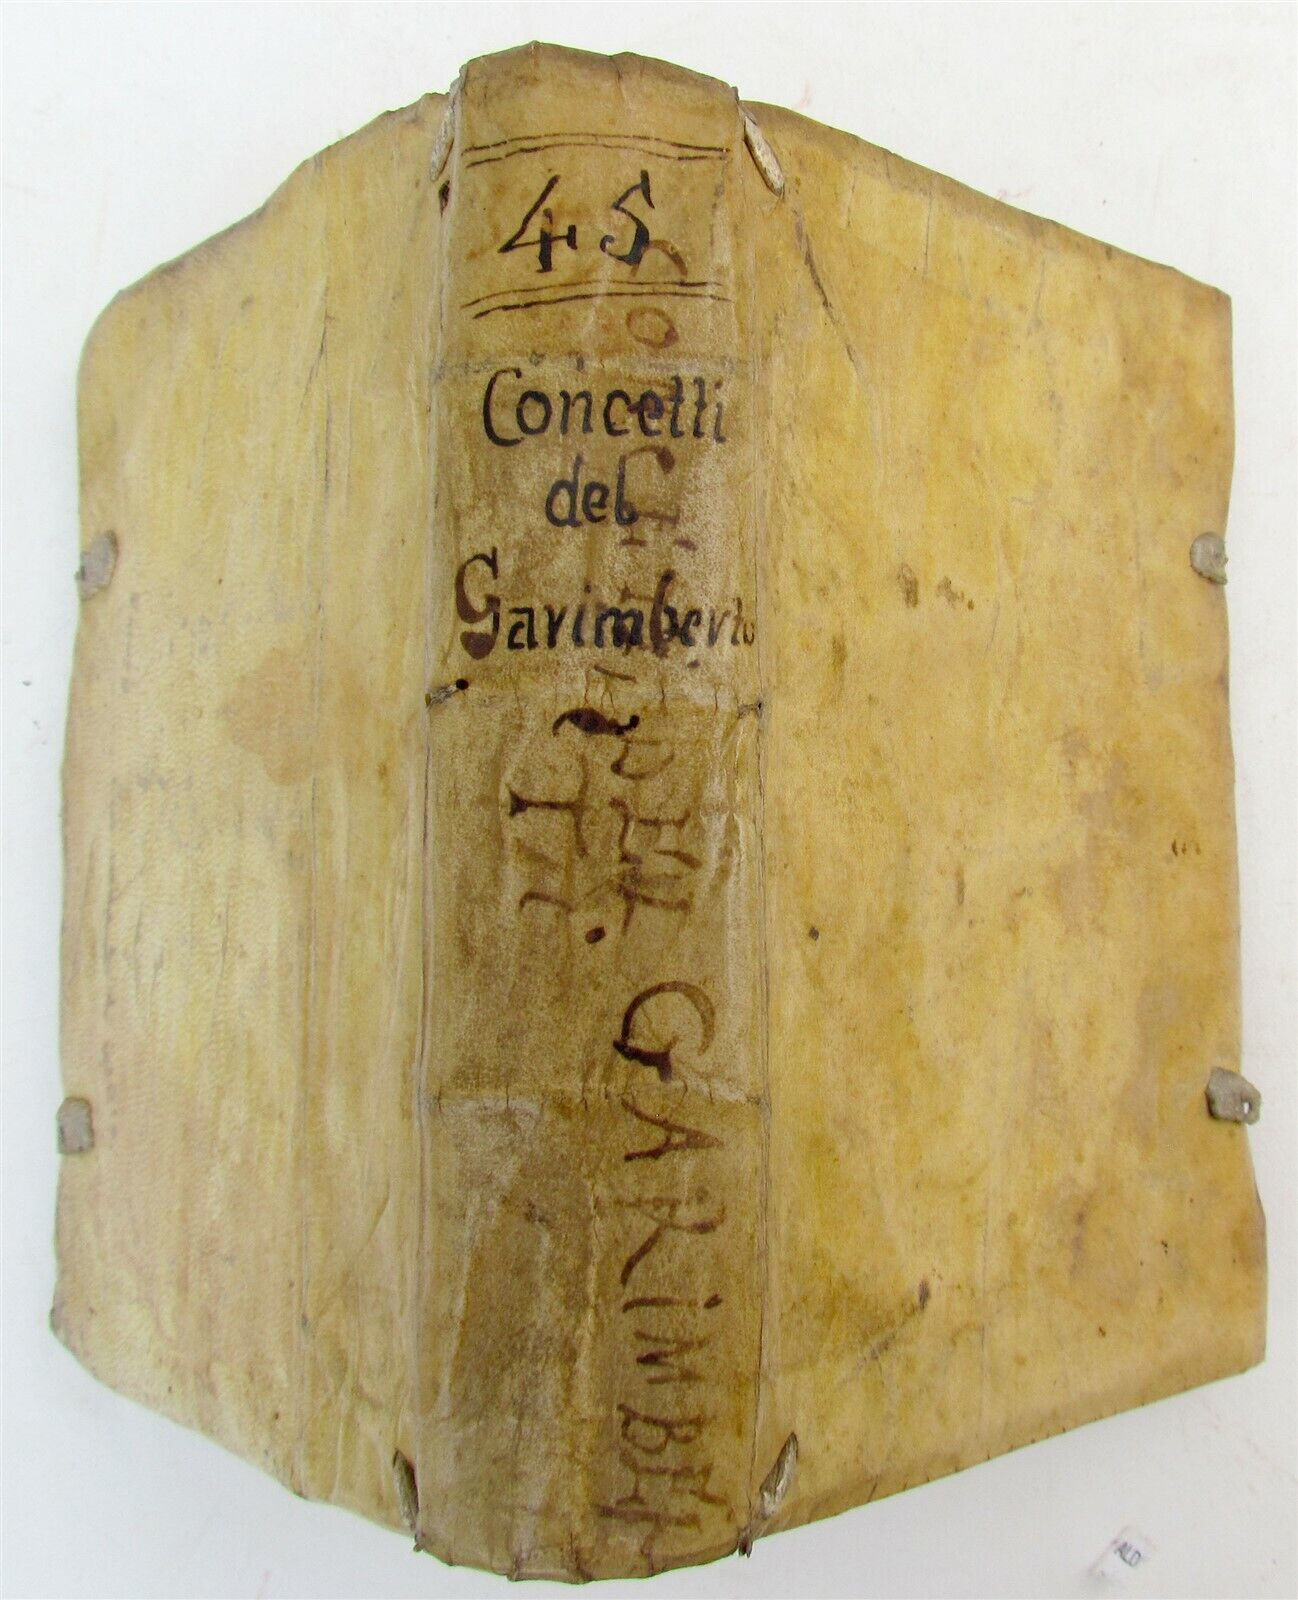 45
Concetti
del
Garimberto
DEL. GARIMBE
ALD